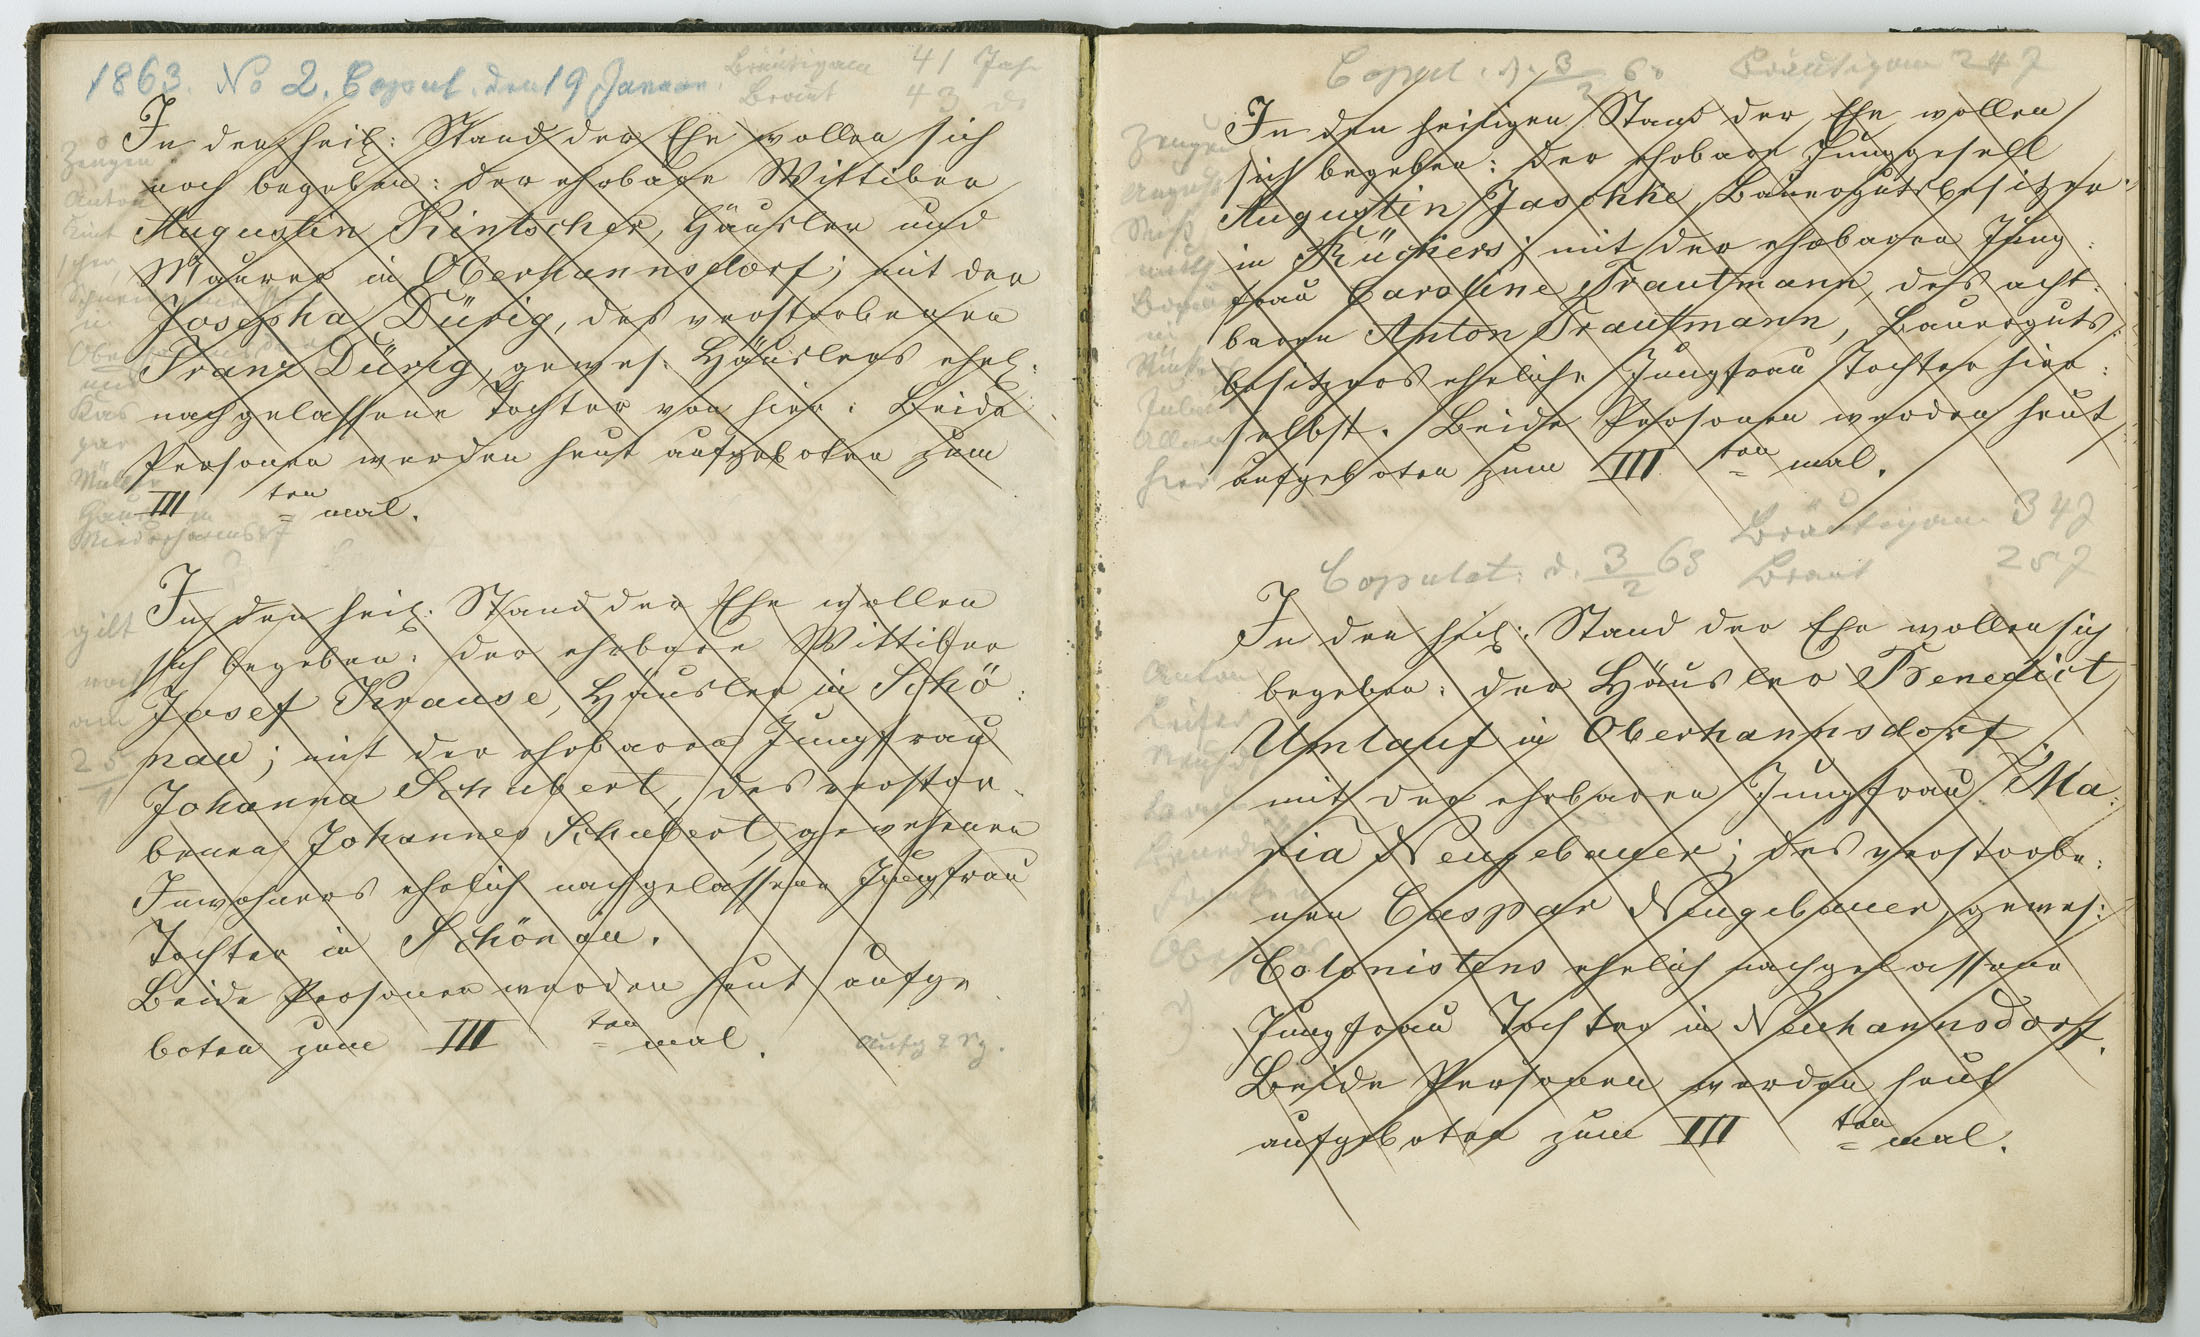 1863. No 2. Copul. den 19 Januar.
Bräutigam 41 Jahr
Braut 43 do
Zeugen
Anton
Kint
scher,
in
und
Kas
par
Müller
in
In den heil: Stand der Ehe wollen sich
noch begeben: der ehrbare Wittiber
Augustin Kintscher, Häusler und
Maurer in Oberhannsdorf; mit der
Josepha Dürig, des verstorbenen
Franz Dürig, gewes. Häuslers ehel:
nachgelassene Tochter von hier. Beide
Personen werden heut aufgeboten zum
III ten mal.
gilt
noch
am
25
1
In den heil: Stand der Ehe wollen
sich begeben: der ehrbare Wittiber
Josef Krause, Häusler in Schö:
nau; mit der ehrbaren Jungfrau
Johanna Schubert, des verstor:
benen Johannes Schubert gewesenen
Inwohners ehelich nachgelassene Jungfrau
Tochter in Schönau.
Beide Personen werden heut aufge
boten zum III ten mal.
Copul. d. 3/2 63 Bräutigam 24 J
Zeugen
August
in
hier
In den heiligen Stand der Ehe wollen
sich begeben: der ehrbare Junggesell
Augustin Jaschke, Bauergutsbesitzer
in Rückers; mit der ehrbaren Jung:
frau Caroline Trautmann, des acht:
baren Anton Trautmann, Bauerguts:
besitzers eheliche Jungfrau Tochter hier:
selbst. Beide Personen werden heut
aufgeboten zum III ten mal.
Bräutigam 34 J
Copulat: d. 3/2 63 Braut 25 J
Anton
In den heil: Stand der Ehe wollen sich
begeben: der Häusler Benedict
Umlauf in Oberhannsdorf,
mit der ehrbaren Jungfrau Ma:
ria Neugebauer; des verstorbe:
nen Caspar Neugebauer, gewes:
Colonistens ehelich nachgelassene
Jungfrau Tochter in Neuhannsdorf.
Beide Personen werden heut
aufgeboten zum III ten mal.